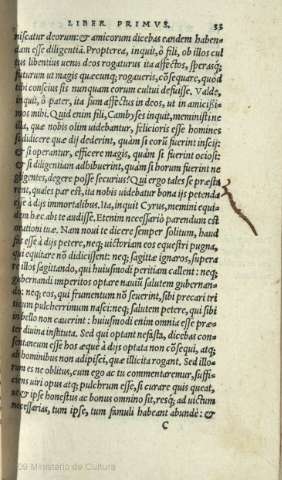 LIBER PRIMVS. 33
niscatur deorum: & amicorum dicebas eandem haben-
dam esse diligentiã. Propterea, inquit, ô fili, ob illos cul
tus libentius uenis deos rogaturus ita affectos, sperasq;
futurum ut magis quæcunq; rogaueris, cõsequare, quod
tibi conscius sis nunquam eorum cultui defuisse. Valde,
inquit, ô pater, ita sum affectus in deos, ut in amicissi-
mos mihi. Quid enim fili, Cambyses inquit, meministi ne
illa, quæ nobis olim uidebantur, feliciores esse homines
si didicere quæ dij dederint, quàm si eorũ fuerint inscij:
& si operantur, efficere magis, quàm si fuerint ociosi:
& si diligentiam adhibuerint, quàm si horum fuerint ne
gligentes, degere posse securius? Qui ergo tales se præsti
terint, quales par est, ita nobis uidebatur bona ijs petenda
esse à dijs immortalibus. Ita, inquit Cyrus, memini equi-
dem hæc abs te audisse. Etenim necessariò parendum est
orationi tuæ. Nam noui te dicere semper solitum, haud
fas esse à dijs petere, neq; uictoriam eos equestri pugna,
qui equitare nõ didicissent: neq; sagittæ ignaros, supera
re illos sagittando, qui huiusmodi peritiam callent: neq;
gubernandi imperitos optare nauiũ salutem gubernan-
do: neq; eos, qui frumentum nõ seuerint, sibi precari tri
ticum pulcherrimum nasci: neq; salutem petere, qui sibi
in bello non cauerint: huiusmodi enim omnia esse præ-
ter diuina instituta. Sed qui optant nefasta, dicebas con-
sentaneum esse hos æquè à dijs optata non cõsequi, atq;
ab hominibus non adipisci, quæ illicita rogant. Sed illo-
rum es ne oblitus, cum ego ac tu commentaremur, suffi-
ciens uiri opus atq; pulchrum esse, si curare quis queat,
ut & ipse honestus ac bonus omnino sit, resq; ad uictum
necessarias, tum ipse, tum famuli habeant abundè: &
C
09 Ministerio de Cultura